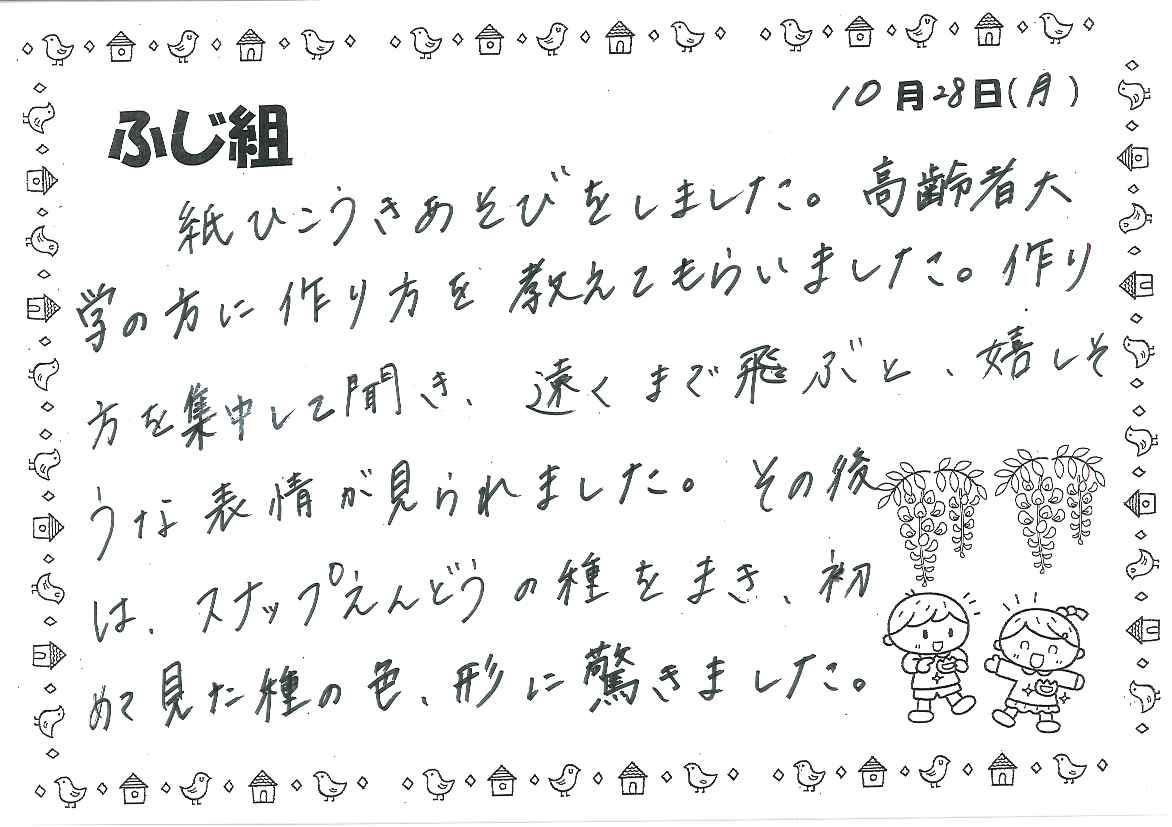 10月28日(月)
ふじ組
紙ひこうきあそびをしました。高齢者大
学の方に作り方を教えてもらいました。作り
方を集中して聞き、遠くまで飛ぶと、嬉しそ
うな表情が見られました。その後
は、スナップえんどうの種をまき、初
めて見た種の色、形に驚きました。